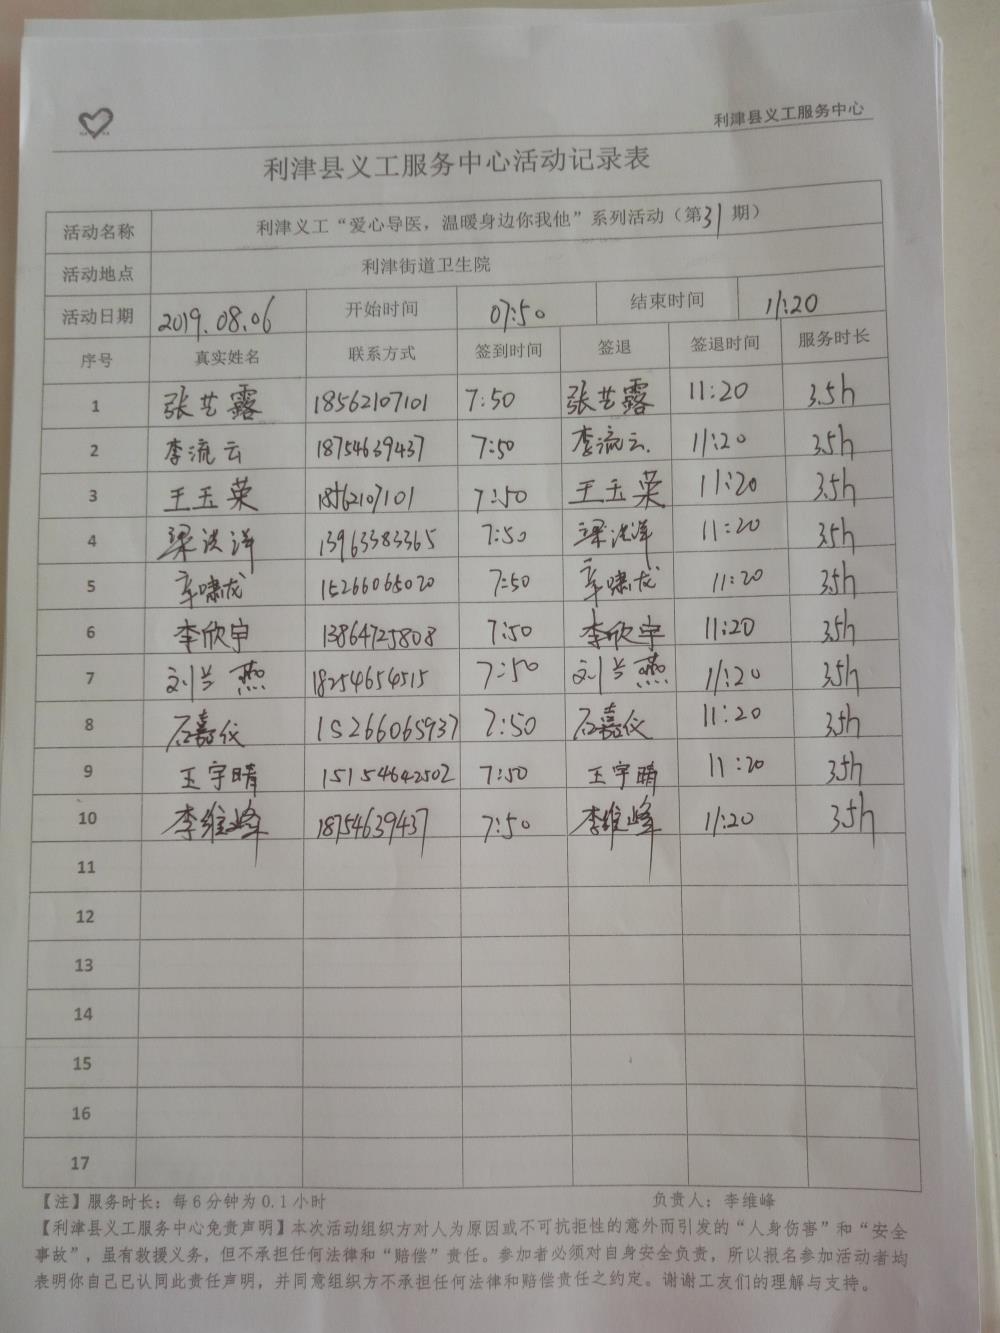 利津县义工服务中心
利津县义工服务中心活动记录表
活动名称 利津义工“爱心导医，温暖身边你我他”系列活动（第31期）
活动地点 利津街道卫生院
活动日期 2019.08.06 开始时间 07:50 结束时间 11:20
序号 真实姓名 联系方式 签到时间 签退 签退时间 服务时长
1 张艺露 18562107101 7:50 张艺露 11:20 3.5h
2 李流云 18754639437 7:50 李流云 11:20 3.5h
3 王玉荣 18562107101 7:50 王玉荣 11:20 3.5h
4 梁洪洋 13963383365 7:50 梁洪洋 11:20 3.5h
5 辛啸龙 15266065020 7:50 辛啸龙 11:20 3.5h
6 李欣宇 13864725808 7:50 李欣宇 11:20 3.5h
7 刘兰燕 18254654515 7:50 刘兰燕 11:20 3.5h
8 石嘉仪 15266065937 7:50 石嘉仪 11:20 3.5h
9 王宇晴 15154642502 7:50 王宇晴 11:20 3.5h
10 李维峰 18754639437 7:50 李维峰 11:20 3.5h
11
12
13
14
15
16
17
【注】服务时长：每6分钟为0.1小时 负责人：李维峰
【利津县义工服务中心免责声明】本次活动组织方对人为原因或不可抗拒性的意外而引发的“人身伤害”和“安全
事故”，虽有救援义务，但不承担任何法律和“赔偿”责任。参加者必须对自身安全负责，所以报名参加活动者均
表明你自己已认同此责任声明，并同意组织方不承担任何法律和赔偿责任之约定。谢谢工友们的理解与支持。